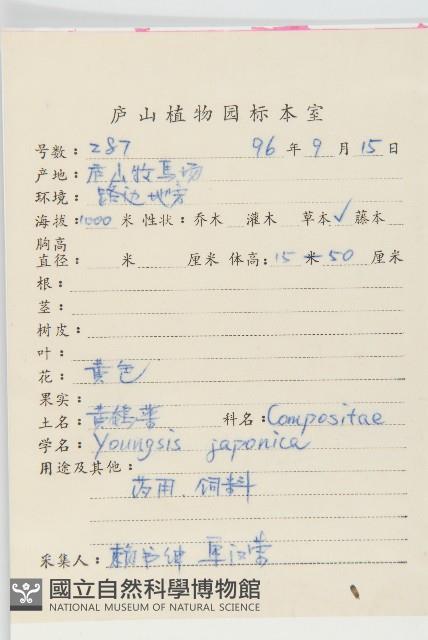 庐山植物园标本室
号数: 287 96 年 9 月 15 日
产地: 庐山牧馬场
环境: 路边地旁
海拔: 1000 米 性状: 乔木 灌木 草本✓ 藤本
胸高
直径: 米 厘米 体高: 15 米 50 厘米
根:
茎:
树皮:
叶:
花: 黄色
果实:
土名: 黄鹌菜 科名: Compositae
学名: Youngsis japonica
用途及其他:
药用、饲料
采集人: 赖书绅
國立自然科學博物館
NATIONAL MUSEUM OF NATURAL SCIENCE